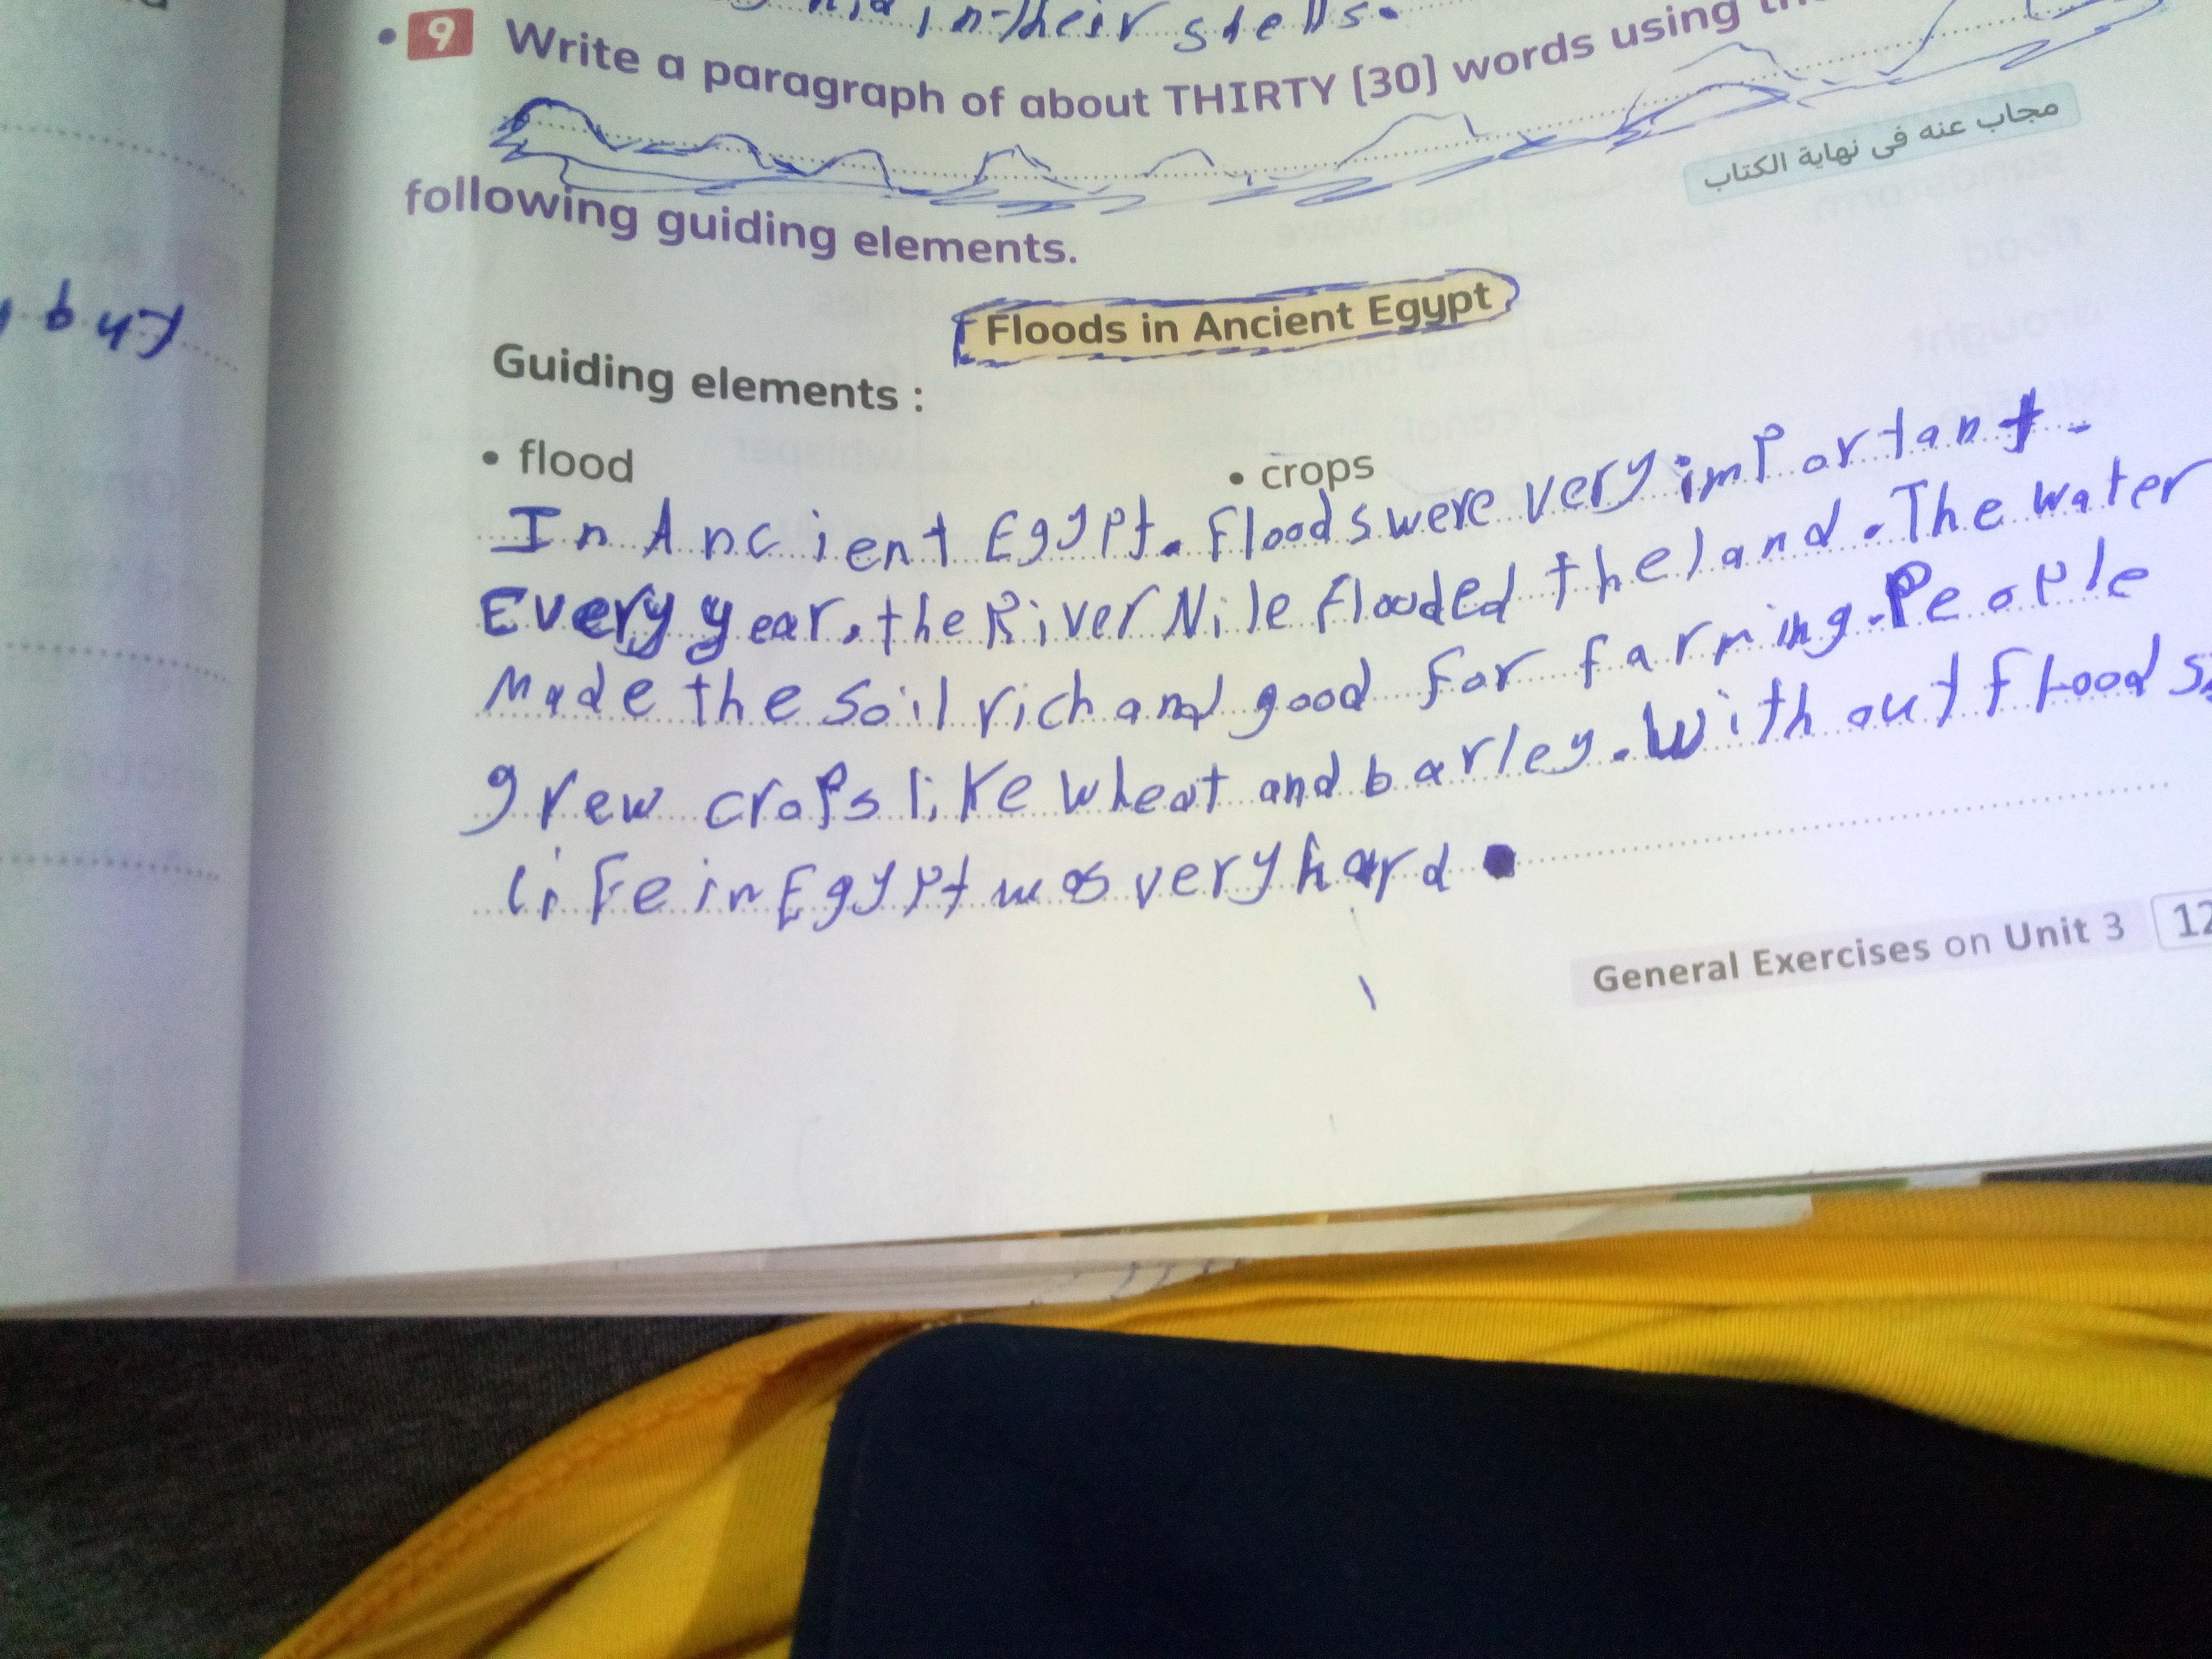 in their shells.
9 Write a paragraph of about THIRTY (30) words using
following guiding elements.
مجاب عنه فى نهاية الكتاب
Floods in Ancient Egypt
Guiding elements :
• flood • crops
In Ancient Egypt. Floods were very important.
Every year, the River Nile flooded the land. The water
Made the soil rich and good for farming. People
grew crops like wheat and barley. Without floods,
life in Egypt was very hard.
General Exercises on Unit 3